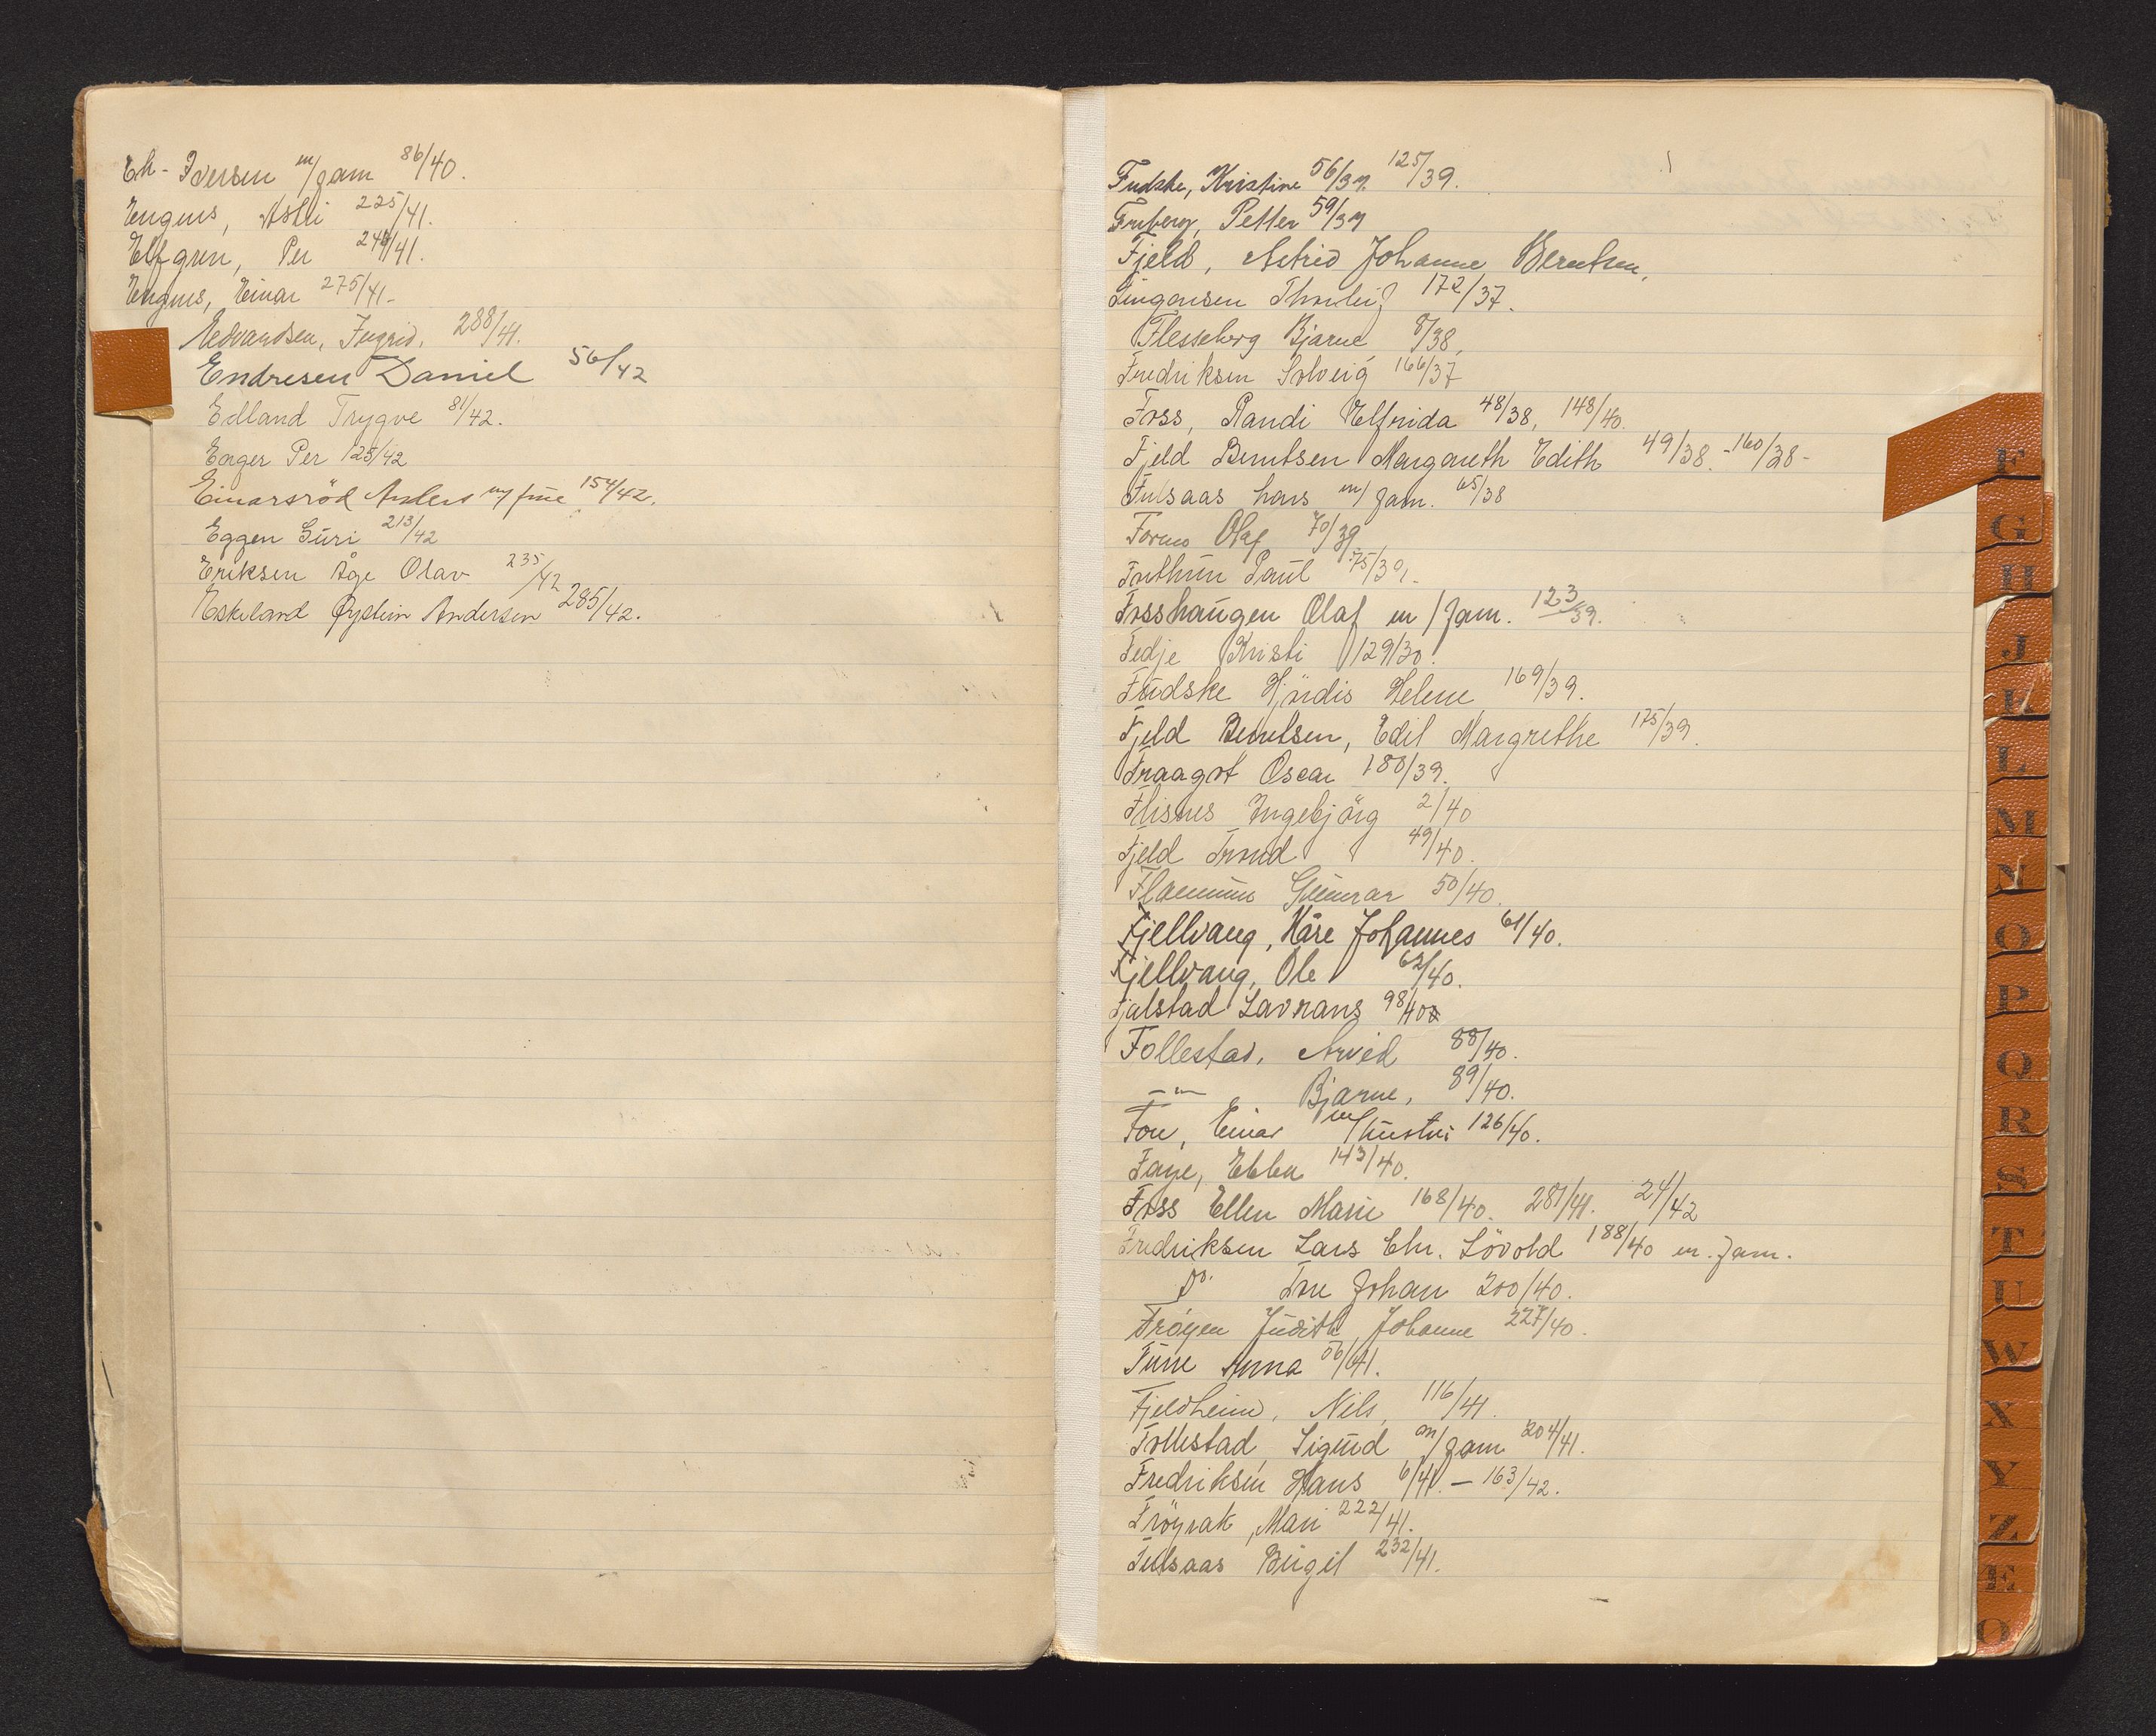 Ek-Iversen m/fam 86/40.
Engnes, Aslu 225/41.
Elfgren, Per 244/41.
Engnes, Einar 275/41.
Nedvandsen, Ingrid, 288/41.
Endresen Daniel 56/42
Edland Trygve 81/42.
Enger Per 125/42
Einarsröd Anders m/frue 154/42.
Eggen Guri 213/42
Eriksen Åge Olav 235/42
Eskeland Øystein Andersen 285/42.
Fudske, Kristine 56/37. 125/39.
Friberg, Petter 59/37
Fjeld, Astrid Johanne Berntsen,
Thorleif 172/37.
Flesseberg Bjarne 8/38,
Fredriksen Solveig 166/37
Foss, Randi Elfrida 48/38, 148/40.
Fjeld Berntsen Margareth Edith 49/38. -160/38-
Fulsaas Lars m/fam. 65/38
Formo Olaf 70/39
Frithun Paul 75/39.
Fosshaugen Olaf m/fam. 123/39.
Fedje Kristi 129/30.
Fudske Hjördis Helene 169/39.
Fjeld Berntsen, Edit Margrethe 175/39.
Fraagot Oscar 188/39.
Flisnes Ingebjörg 2/40
Fjeld Trond 49/40.
Flammum Gunnar 50/40.
Fjellvang, Kåre Johannes 61/40.
Fjellvang, Ole 62/40.
Fjalstad Lavrans 98/40
Follestad, Arvid 88/40.
—"— Bjarne, 89/40.
Foss, Einar m/hustru 126/40.
Faye, Ebba 143/40.
Foss Ellen Marie 168/40. 281/41. 24/42
Fredriksen Lars Chr. Lövold 188/40 m. fam.
Do. Tore Johan 200/40.
Fröyen Judith Johanne 227/40.
Fure Anna 56/41.
Fjeldheim, Nils, 116/41.
Follestad, Sigurd m/fam 204/41.
Fredriksen Hans 6/41. - 163/42.
Fröyrak, Mari 222/41.
Fulsaas Birgit 232/41.
F
G
H
J
K
L
M
N
O
P
Q
R
S
T
U
W
X
Y
Z
Æ
Ö